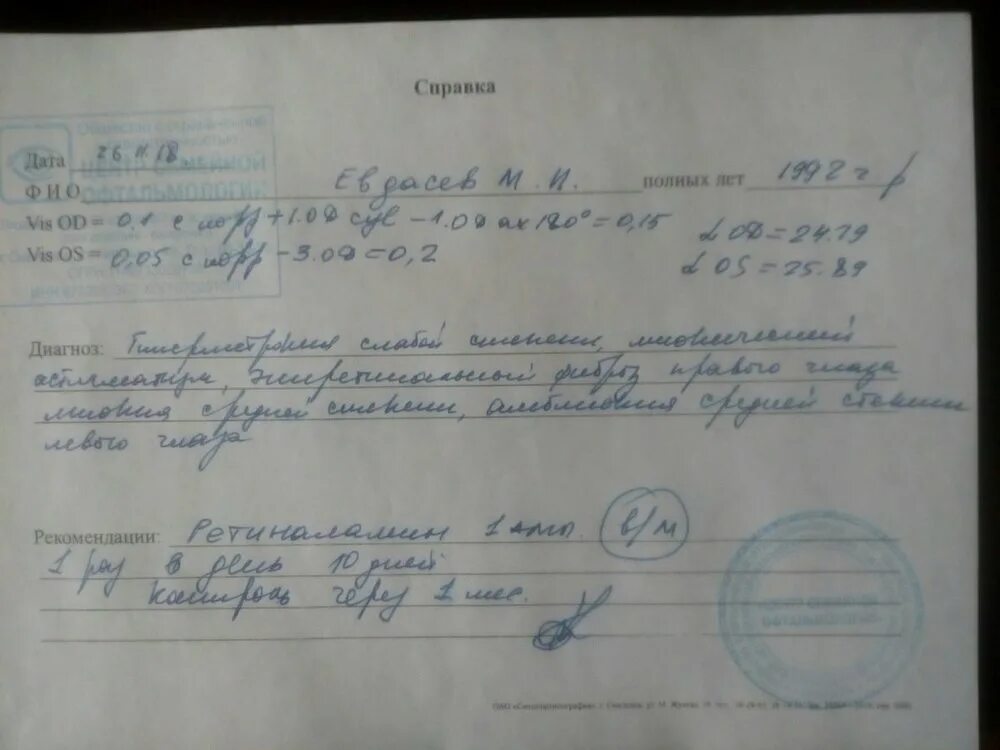 Справка
Дата 26 11 18
ЦЕНТР СЕМЕЙНОЙ
ОФТАЛЬМОЛОГИИ
ФИО Евдасев М. И. полных лет 1992 г р
Vis OD = 0.1 с корр +1.0Д cyl -1.0Д ax 180° = 0,15
L OD = 24.19
Vis OS = 0,05 с корр -3.0Д = 0,2
L OS = 25.89
Диагноз: Гиперметропия слабой степени, миопический
астигматизм, эпиретинальный фиброз правого глаза
миопия средней степени, амблиопия средней степени
левого глаза
Рекомендации: Ретиналамин 1 амп. в/м
1 раз в день 10 дней
Контроль через 1 мес.
ЦЕНТР СЕМЕЙНОЙ
ОФТАЛЬМОЛОГИИ